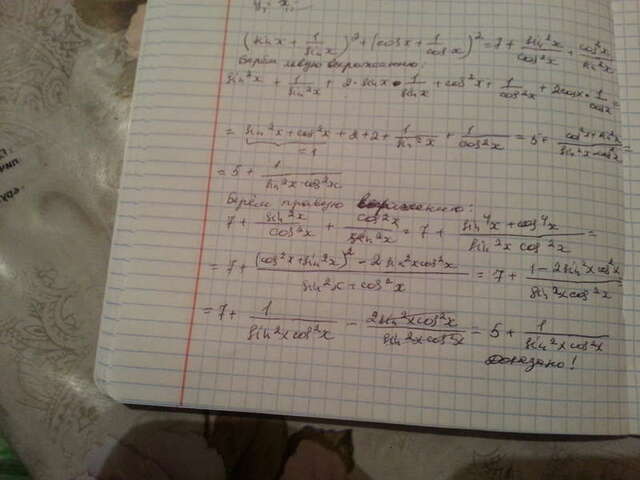 (sin x + 1/sin x)² + (cos x + 1/cos x)² = 7 + sin²x/cos²x + cos²x/sin²x
Берём левую выражению:
sin²x + 1/sin²x + 2·sin x · 1/sin x + cos²x + 1/cos²x + 2cos x · 1/cos x =
= sin²x + cos²x + 2 + 2 + 1/sin²x + 1/cos²x = 5 + cos²x + sin²x/sin²x cos²x =
= 1
= 5 + 1/sin²x·cos²x
Берём правую выражению:
7 + sin²x/cos²x + cos²x/sin²x = 7 + sin⁴x + cos⁴x/sin²x cos²x =
= 7 + (cos²x + sin²x)² - 2sin²x cos²x/sin²x · cos²x = 7 + 1 - 2sin²x cos²x/sin²x cos²x
= 7 + 1/sin²x cos²x - 2sin²x cos²x/sin²x cos²x = 5 + 1/sin²x cos²x
доказано!